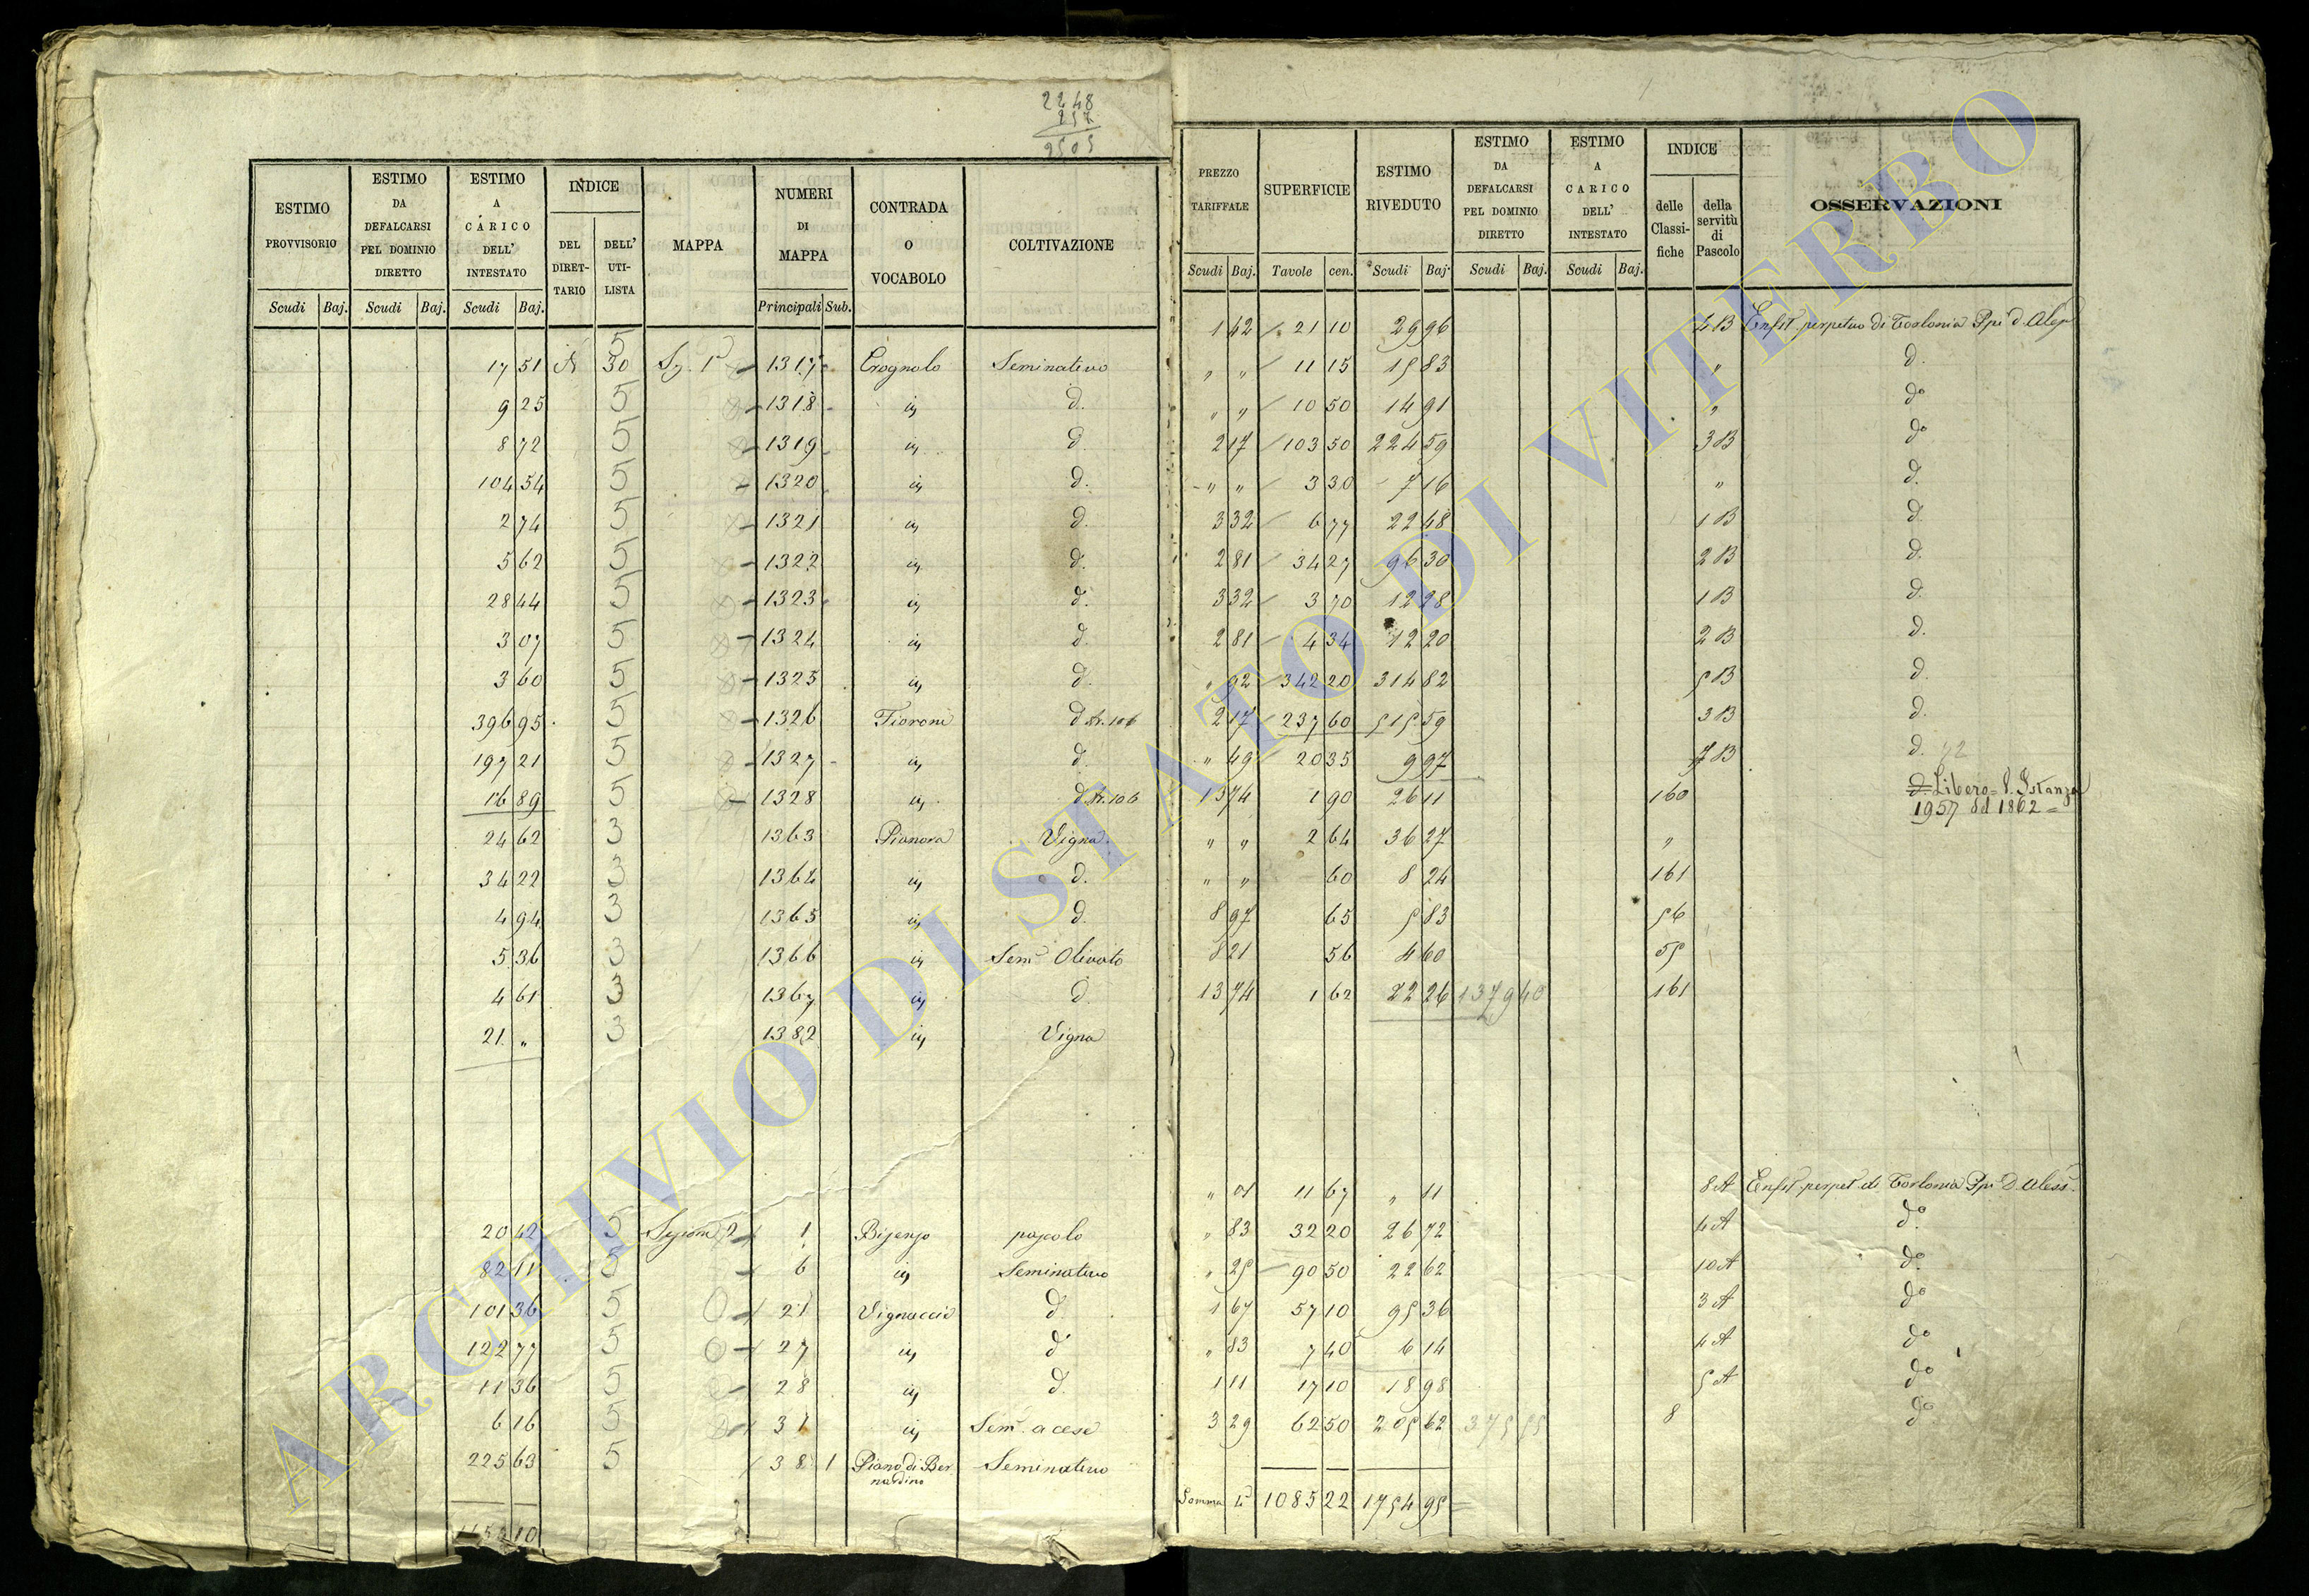 2248
257
2505
ESTIMO PROVVISORIO
ESTIMO DA DEFALCARSI PEL DOMINIO DIRETTO
ESTIMO A CARICO DELL' INTESTATO
INDICE
DEL DIRET-TARIO
DELL' UTI-LISTA
MAPPA
NUMERI DI MAPPA
CONTRADA O VOCABOLO
COLTIVAZIONE
Scudi Baj. Scudi Baj. Scudi Baj. Principali Sub.
17 51 A 30 5 Sz. 1ª 1317 Crognolo Seminativo
9 25 5 1318 in d.
8 72 5 1319 in d
104 54 5 1320 in d.
2 74 5 1321 in d.
5 62 5 1322 in d.
28 44 5 1323 in d.
3 07 5 1324 in d.
3 60 5 1325 in d.
396 95 5 1326 Fioroni d
197 21 5 1327 in d.
16 89 5 1328 in d.
24 62 3 1363 Pianora Vigna
34 22 3 1364 in d.
4 94 3 1365 in d.
5 36 3 1366 in Sem. Olivato
4 61 3 1367 in d.
21 " 3 1382 in Vigna
20 42 5 1 pascolo
82 11 5 6 in Seminativo
101 36 5 21 Vignaccia d.
122 77 5 27 in d
11 36 5 28 in d.
6 16 5 31 in Sem. a cese
225 63 5 38 1 Piano di Ber nardino Seminativo
PREZZO TARIFFALE
SUPERFICIE
ESTIMO RIVEDUTO
ESTIMO DA DEFALCARSI PEL DOMINIO DIRETTO
ESTIMO A CARICO DELL' INTESTATO
INDICE
delle Classi-fiche
della servitù di Pascolo
OSSERVAZIONI
Scudi Baj. Tavole cen. Scudi Baj. Scudi Baj. Scudi Baj.
1 42 21 10 29 96 4B Enfit. perpetuo di Torlonia Ppe D. Aless
" " 11 15 15 83 " d.
" " 10 50 14 91 " do
2 17 103 50 224 59 3B do
" " 3 30 7 16 " d.
3 32 6 77 22 48 1B d.
2 81 34 27 96 30 2B d.
3 32 3 70 12 28 1B d.
2 81 4 34 12 20 2B d.
" 92 342 20 314 82 5B d.
2 17 237 60 515 59 3B d.
" 49 20 35 9 97 7B d. 72
13 74 1 90 26 11 160 d. Libero = V. Istanza
1957 del 1862 =
" " 2 64 36 27 "
" " 60 8 24 161
8 97 65 5 83 56
8 21 56 4 60 55
13 74 1 62 22 26 1379 40 161
" 01 11 67 " 11 8A Enfit. perpet. di Torlonia Ppe D. Aless.
" 83 32 20 26 72 4A do
" 25 90 50 22 62 10A do
1 67 57 10 95 36 3A do
" 83 7 40 6 14 4A do
1 11 17 10 18 98 5A do
3 29 62 50 205 62 375 55 8 do
Somma 1085 22 1754 95
ARCHIVIO DI STATO DI VITERBO